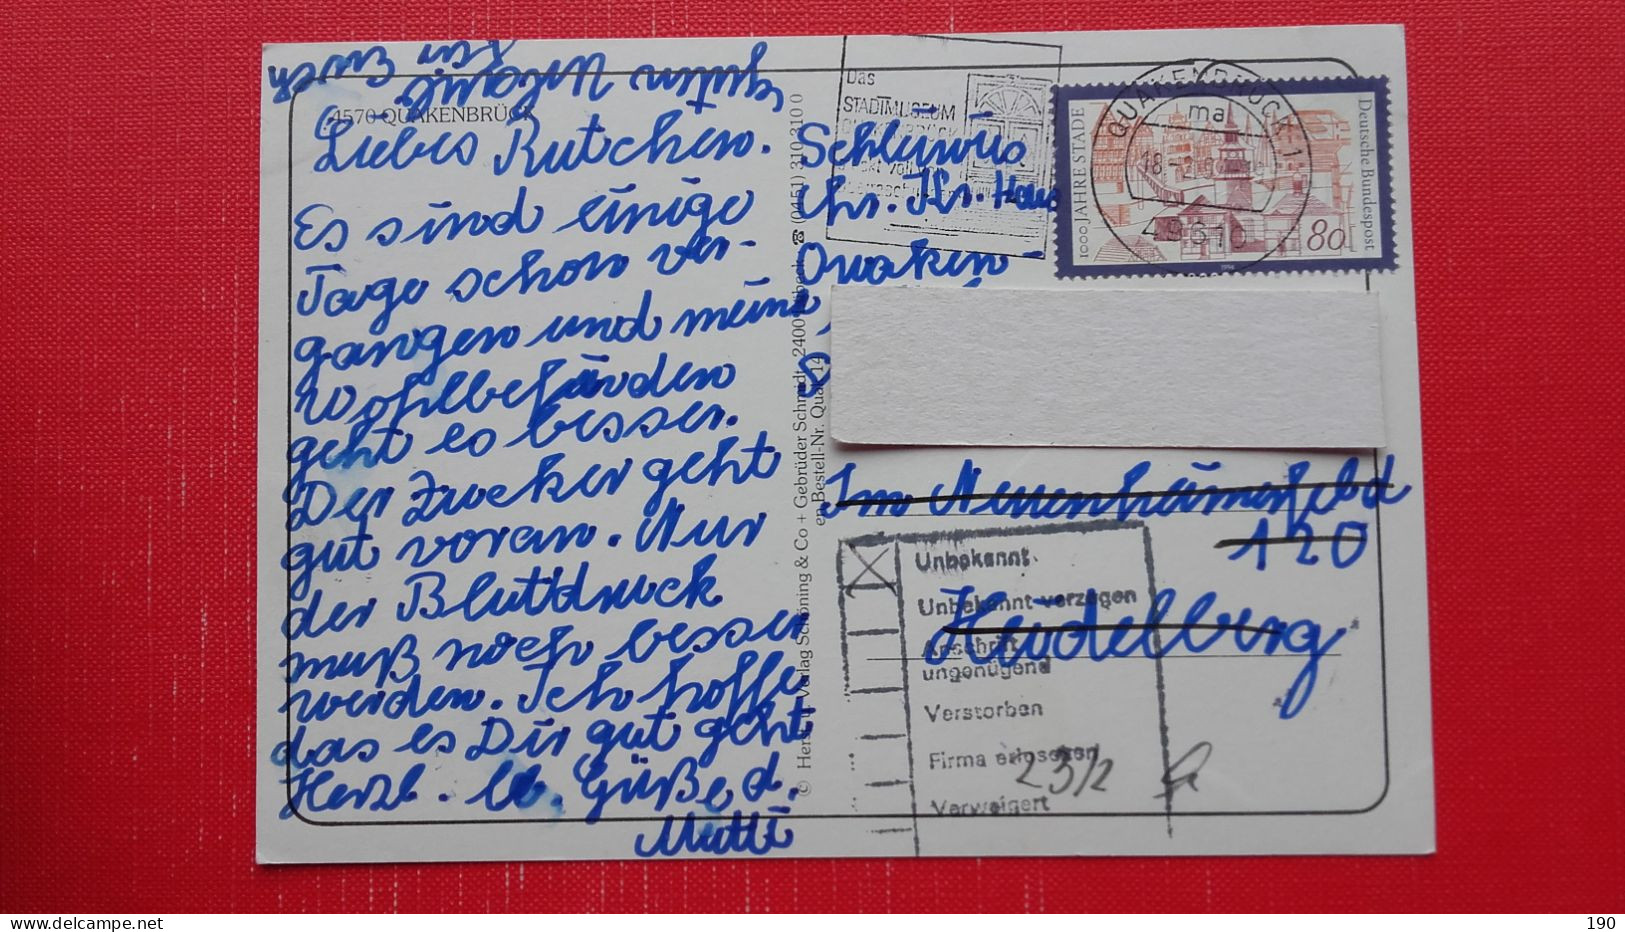 4570 QUAKENBRÜCK
Liebes Rutchen.
Es sind einige
Tage schon ver-
gangen und meine
Wohlbefinden
geht es besser.
Der Zucker geht
gut voran. Nur
der Blutdruck
muß noch besser
werden. Ich hoffe
das es Dir gut geht
Herzl. lb. Grüße d.
Mutti
© Verlag Schöning & Co + Gebrüder Schmidt, 2400 Lübeck ☎ (0451) 310 310 0
Bestell-Nr. Quak 14
Das
STADTMUSEUM
QUAKENBRÜCK
QUAKENBRÜCK 1
ma
49610
1000 JAHRE STADE
Deutsche Bundespost
80
1994
Chr. Kr. Haus
Quaken-
Im Neuenheimerfeld
120
Heidelberg
Unbekannt
Unbekannt verzogen
Anschrift
ungenügend
Verstorben
Firma erloschen
Verweigert
23/2
190